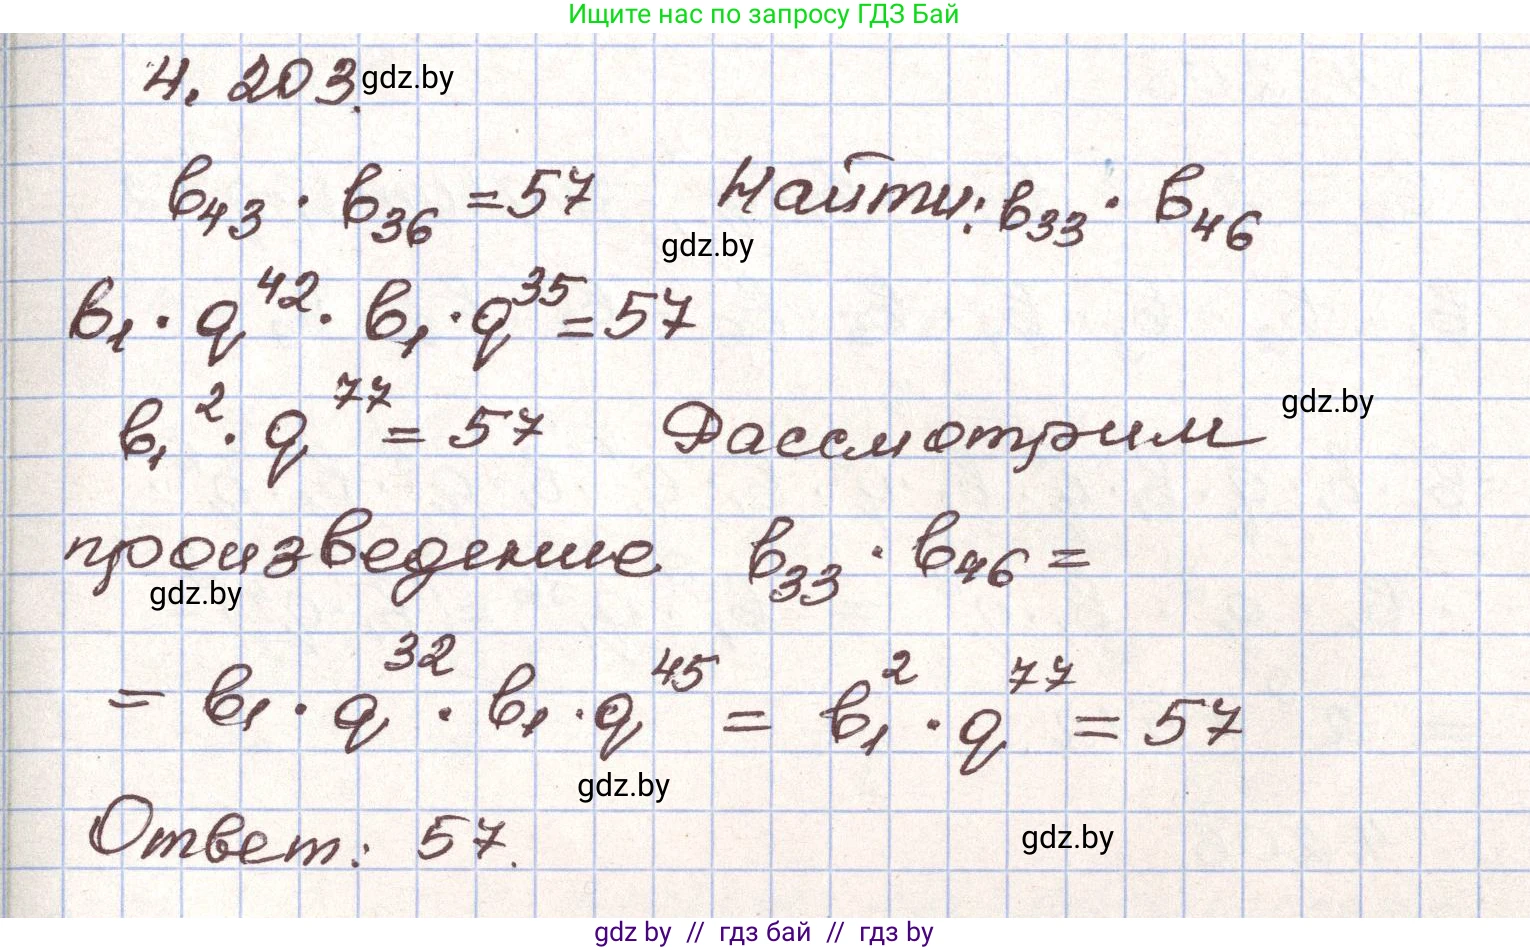 Ищите нас по запросу ГДЗ Бай
4.203. gdz.by
b₄₃ · b₃₆ = 57 Найти: b₃₃ · b₄₆
gdz.by
b₁ · q⁴² · b₁ · q³⁵ = 57
b₁² · q⁷⁷ = 57 Рассмотрим gdz.by
произведение b₃₃ · b₄₆ =
gdz.by
= b₁ · q³² · b₁ · q⁴⁵ = b₁² · q⁷⁷ = 57
gdz.by
Ответ: 57. gdz.by
gdz by // gdz бай // гдз by